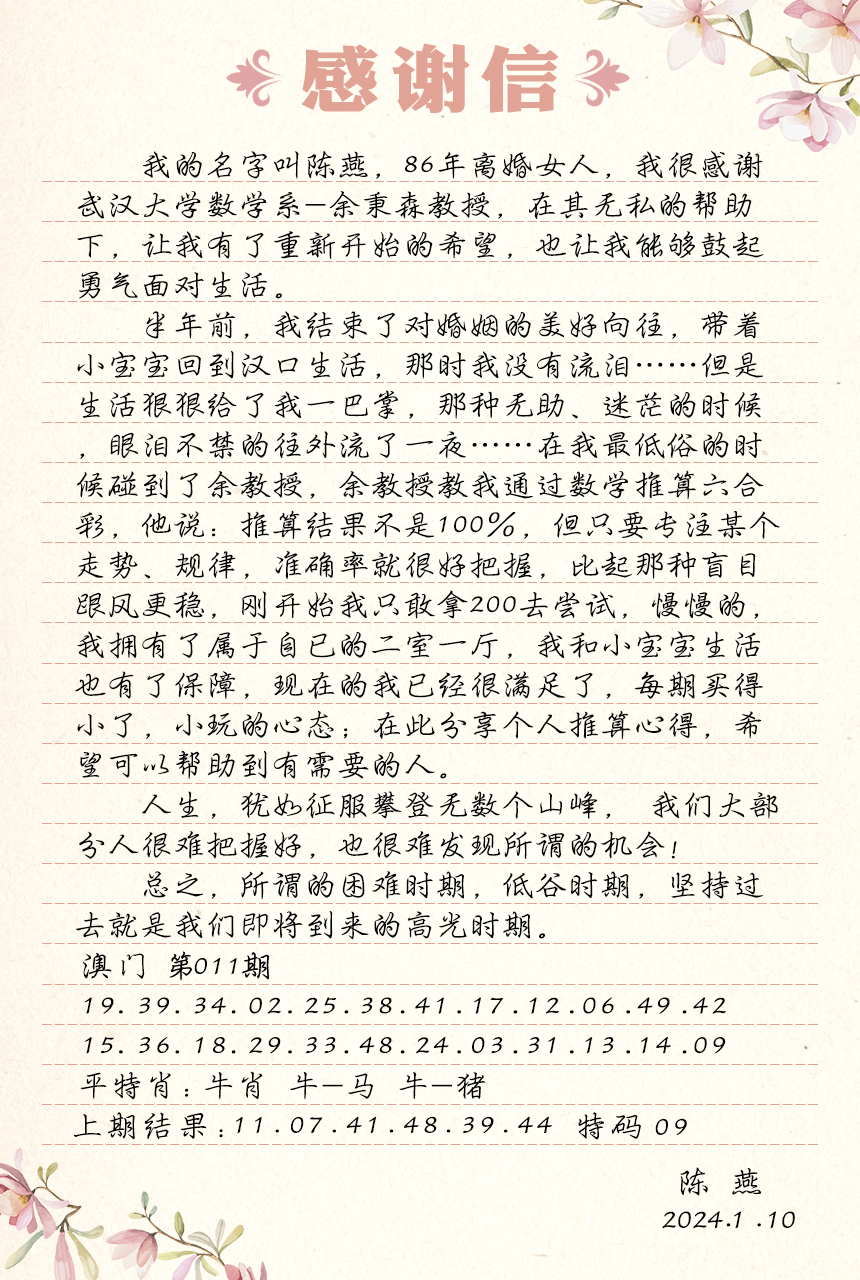 感谢信
我的名字叫陈燕，86年离婚女人，我很感谢
武汉大学数学系—余秉森教授，在其无私的帮助
下，让我有了重新开始的希望，也让我能够鼓起
勇气面对生活。
半年前，我结束了对婚姻的美好向往，带着
小宝宝回到汉口生活，那时我没有流泪……但是
生活狠狠给了我一巴掌，那种无助、迷茫的时候
，眼泪不禁的往外流了一夜……在我最低俗的时
候碰到了余教授，余教授教我通过数学推算六合
彩，他说：推算结果不是100%，但只要专注某个
走势、规律，准确率就很好把握，比起那种盲目
跟风更稳，刚开始我只敢拿200去尝试，慢慢的，
我拥有了属于自已的二室一厅，我和小宝宝生活
也有了保障，现在的我已经很满足了，每期买得
小了，小玩的心态；在此分享个人推算心得，希
望可以帮助到有需要的人。
人生，犹如征服攀登无数个山峰， 我们大部
分人很难把握好，也很难发现所谓的机会！
总之，所谓的困难时期，低谷时期，坚持过
去就是我们即将到来的高光时期。
澳门 第011期
19.39.34.02.25.38.41.17.12.06.49.42
15.36.18.29.33.48.24.03.31.13.14.09
平特肖：牛肖 牛—马 牛—猪
上期结果：11.07.41.48.39.44 特码09
陈 燕
2024.1.10